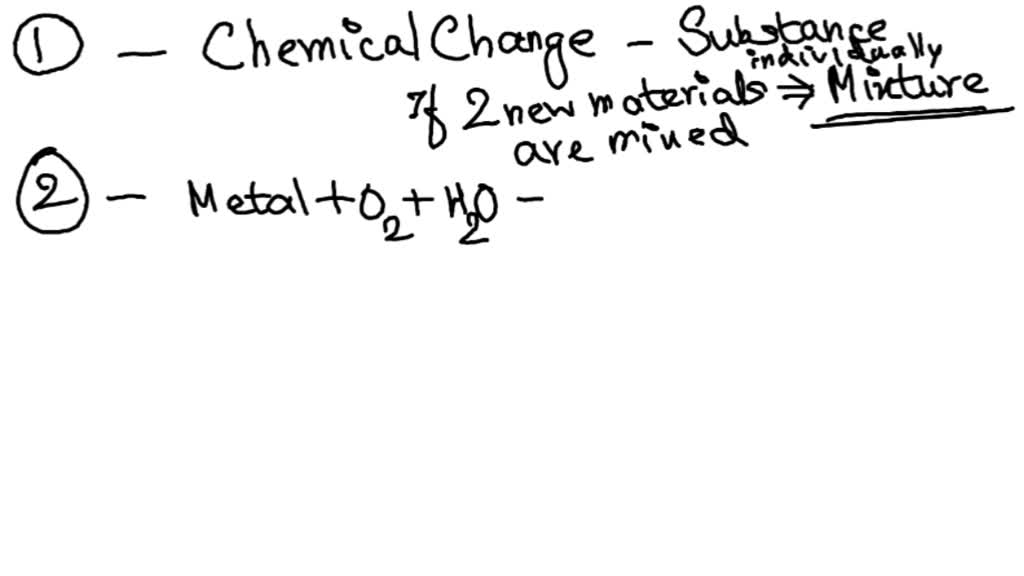 ① — Chemical Change - Substance
individually
If 2 new materials ⇒ Mixture
are mixed
② — Metal + O₂ + H₂O -